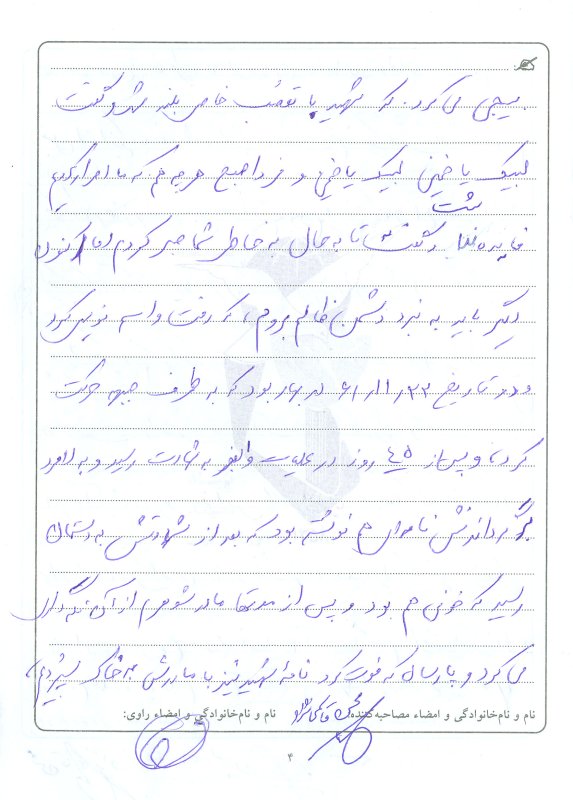 بسیجی می‌کرد. که شهید با تعصب خاص بلند شد و گفت
لبیک یا خمینی لبیک یا خمینی و فردا صبح هر چه هم که ما اصرار کردیم
فایده نداشت و گفت تا به حال به خاطر شما صبر کردم اما اکنون
دیگر باید به نبرد دشمن ظالم بروم، که رفت و اسم نویسی کرد
و در تاریخ ۶۱٫۱۱٫۲۳ در بهار بود که به طرف جبهه حرکت
کرد، و پس از ۴۵ روز در عملیات والفجر به شهادت رسید و به
برگرداندنش نامه‌ای هم نوشته بود که بعد از شهادتش به دستمان
رسید که خونی هم بود و پس از مدتها مادر شوهرم از آن نگهداری
می‌کرد و پارسال که فوت کرد نامهٔ شهید نیز با مادرش به خاک سپردیم،
نام و نام‌خانوادگی و امضاء مصاحبه‌کننده: نام و نام‌خانوادگی و امضاء راوی:
۴